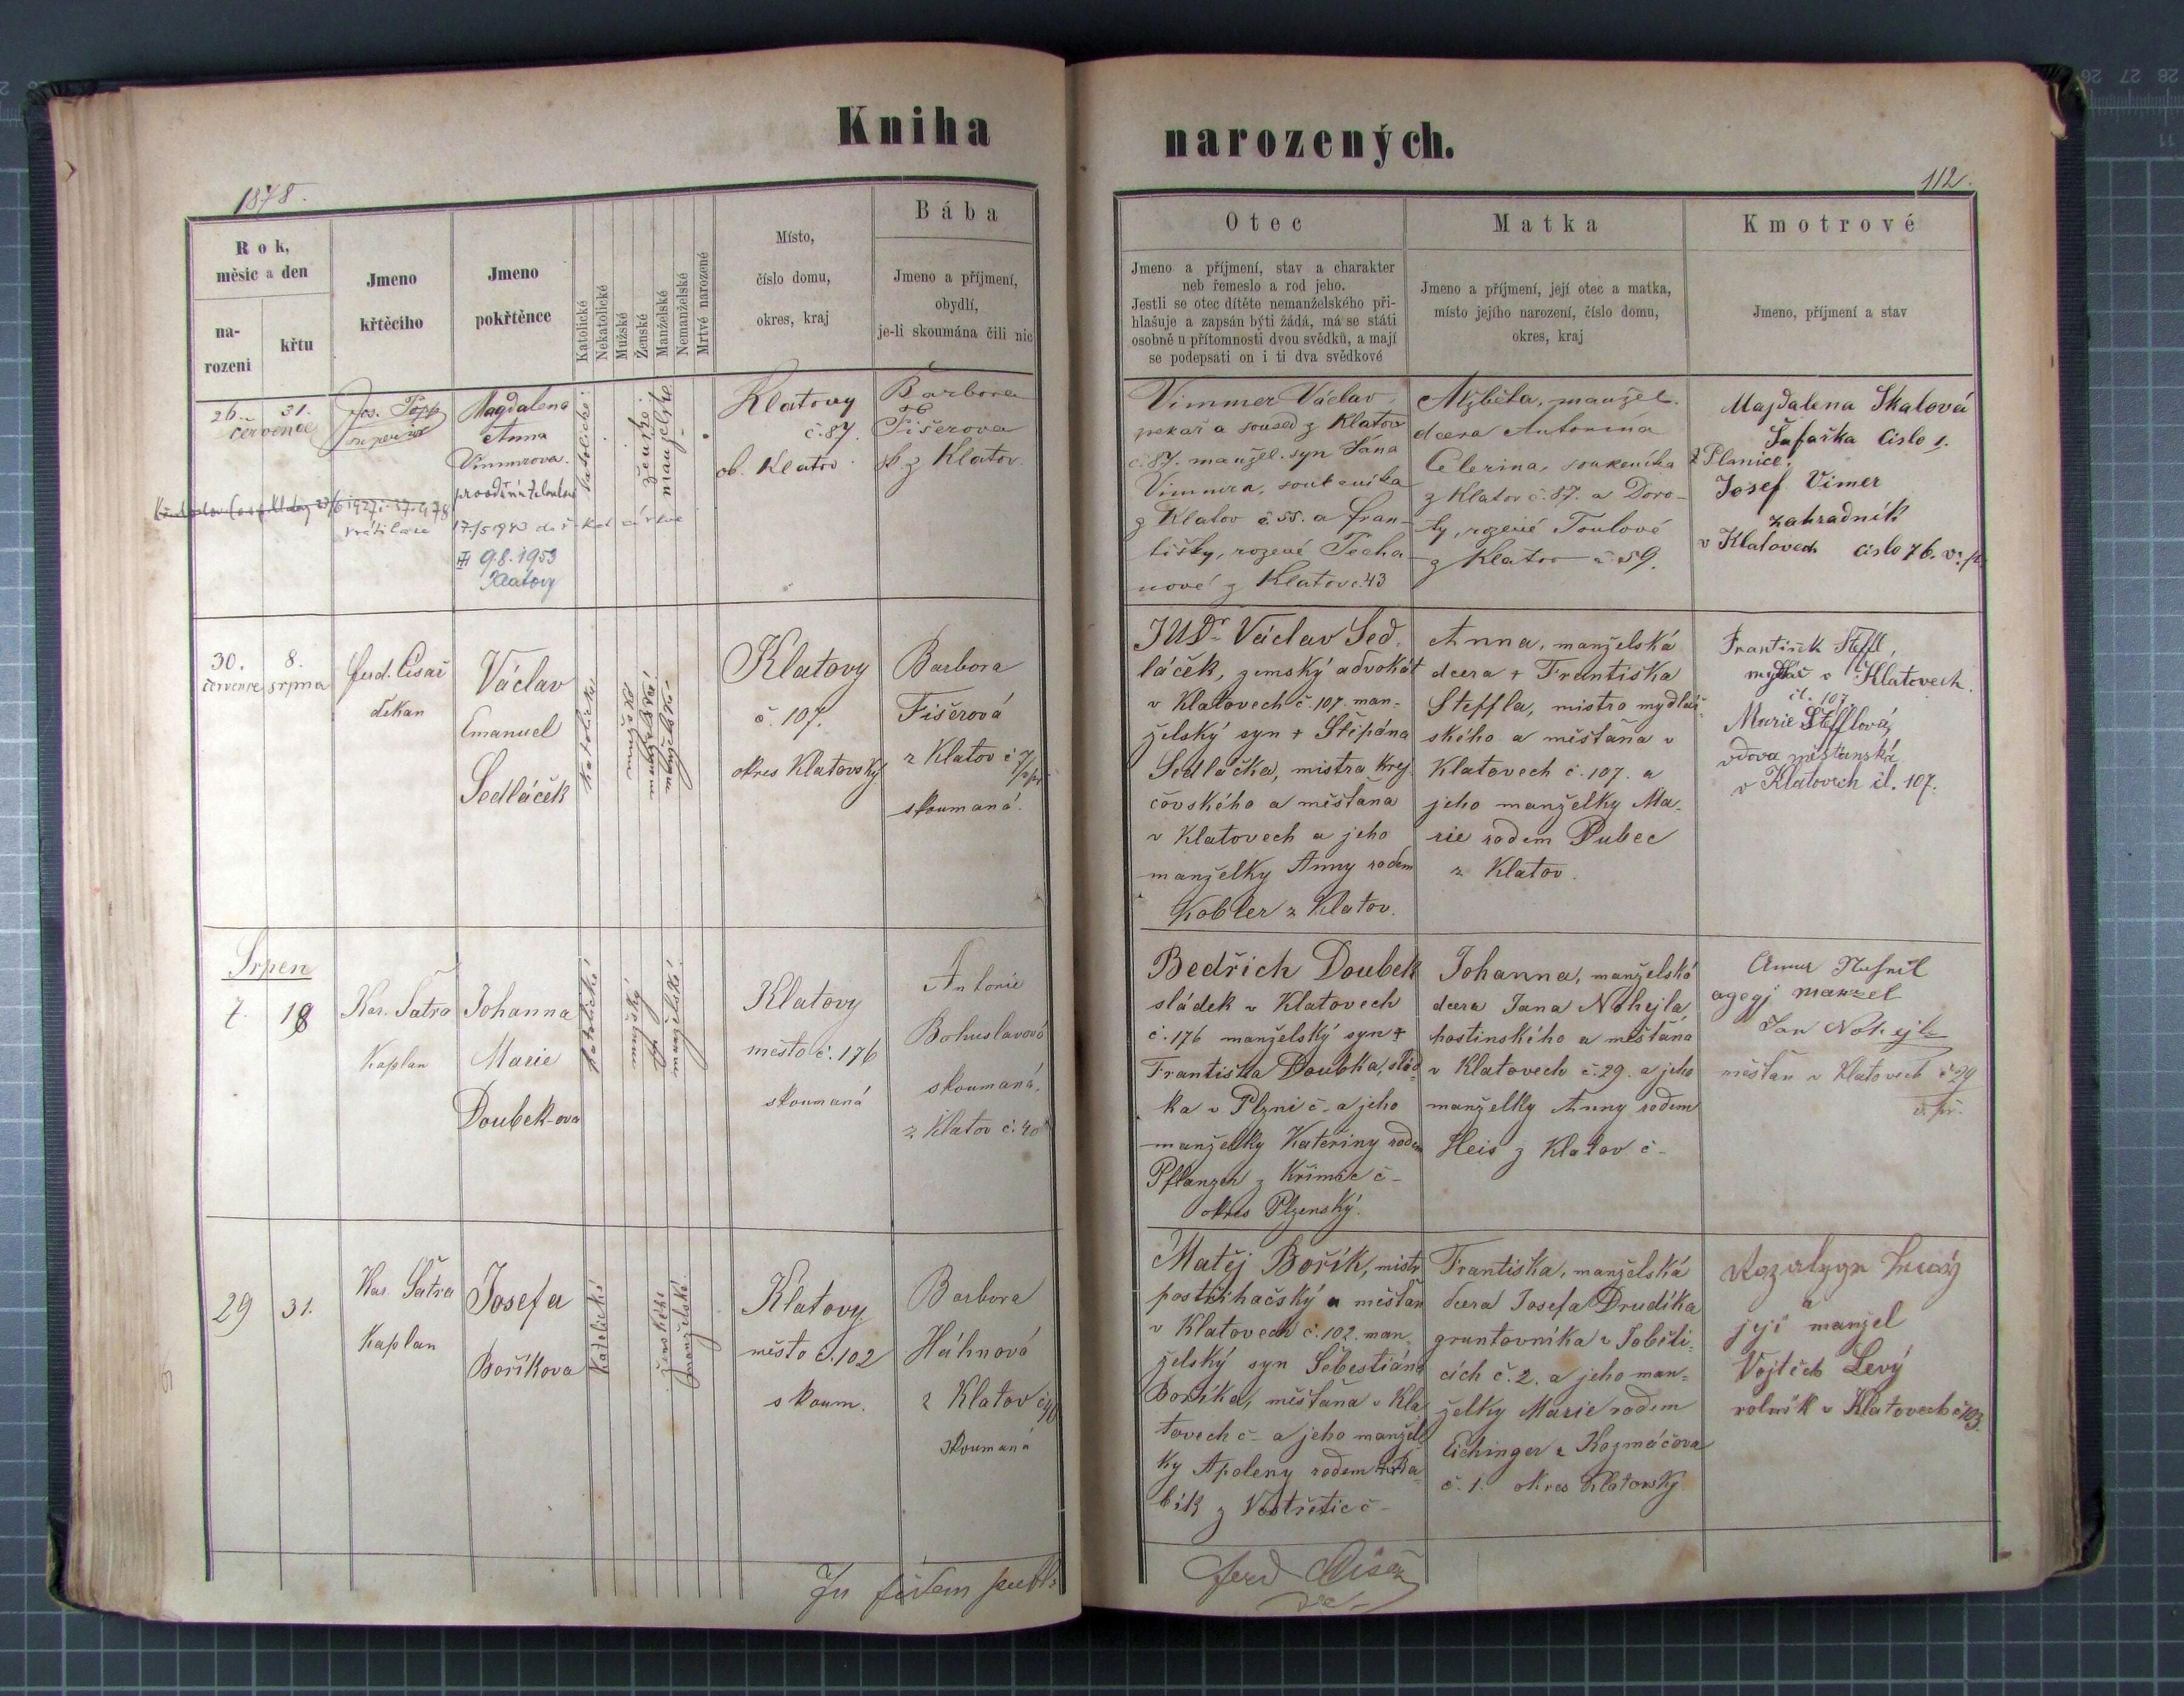 Kniha
narozených.
1878.
112.
Rok,
měsíc a den
na-
rození
křtu
Jmeno
křtěcího
Jmeno
pokřtěnce
Katolické
Nekatolické
Mužské
Ženské
Manželské
Nemanželské
Mrtvé narozené
Místo,
číslo domu,
okres, kraj
Bába
Jmeno a příjmení,
obydlí,
je-li skoumána čili nic
Otec
Jmeno a příjmení, stav a charakter
neb řemeslo a rod jeho.
Jestli se otec dítěte nemanželského při-
hlašuje a zapsán býti žádá, má se státi
osobně u přítomnosti dvou svědků, a mají
se podepsati on i ti dva svědkové
Matka
Jmeno a příjmení, její otec a matka,
místo jejího narození, číslo domu,
okres, kraj
Kmotrové
Jmeno, příjmení a stav
26. 31.
července
Jos. Popp
Magdalena
Anna
Vimmrova.
17/5 1943
9.8.1953
Klatovy
katolické
ženské
manželské
Klatovy
č. 87.
ob. Klatov
Barbora
Fišerova
z Klatov.
Vimmer Václav,
pekař a soused z Klatov
č. 87. manžel. syn Jána
Vimmra, soukeníka
z Klatov č. 55. a Fran-
tišky, rozené Pecha-
nové z Klatov č. 43
Alžběta, manžel.
dcera Antonína
Celerina, soukeníka
z Klatov č. 87. a Doro-
ty, rozené Toulové
z Klatov č. 59.
Magdalena Skalová
Šafařka číslo 1.
z Planice.
Josef Vimer
zahradník
v Klatovech číslo 76.
30. 8.
července srpna
Ferd. Císař
děkan
Václav
Emanuel
Sedláček
katolický
mužský
manželský
Klatovy
č. 107.
okres Klatovský
Barbora
Fišerová
z Klatov
skoumaná.
JUDr. Václav Sed-
láček, zemský advokát
v Klatovech č. 107. man-
želský syn + Štěpána
Sedláčka, mistra krej-
čovského a měšťana
v Klatovech a jeho
manželky Anny rodem
Kobler z Klatov.
Anna, manželská
dcera + Františka
Steffla, mistra mydlář-
ského a měšťana v
Klatovech č. 107. a
jeho manželky Ma-
rie rodem Pubec
z Klatov.
František Steffl,
mydlář v Klatovech.
čl. 107.
Marie Štefflová,
vdova měšťanská
v Klatovech čl. 107.
Srpen
7. 18
Kar. Šatra
Kaplan
Johanna
Marie
Doubek-ova
katolické
manželské
Klatovy
město č. 176
skoumaná
Antonie
Bohuslavová
skoumaná.
z Klatov č. 40
Bedřich Doubek
sládek v Klatovech
č. 176 manželský syn +
Františka Doubka, slád-
ka v Plzni č - a jeho
manželky Kateřiny rodem
Pflanzer z Křimic č -
okres Plzenský.
Johanna, manželská
dcera Jana Nohejla,
hostinského a měšťana
v Klatovech č. 29. a jeho
manželky Anny rodem
Heis z Klatov č -
Anna
manzel
Jan Nohejl
měšťan v Klatovech č 29
29 31.
Kar. Šatra
Kaplan
Josefa
Boříkova
Katolické
ženského
manželské
Klatovy
město č. 102
skoum.
Barbora
Háhnová
z Klatov
skoumaná
Matěj Bořík, mistr
postřihačský a měšťan
v Klatovech č. 102. man-
želský syn Šebestiána
Boříka, měšťana v Kla-
tovech č - a jeho manžel-
ky Apoleny rodem Ba-
bík z Vostřetic č -
Františka, manželská
dcera Josefa Drudíka
gruntovníka v Soběti-
cích č. 2. a jeho man-
želky Marie rodem
Eichinger z Kozmáčova
č. 1. okres Klatovský
a
její manžel
Vojtěch Levý
rolník v Klatovech č 103.
In fidem publ.
Ferd Císař